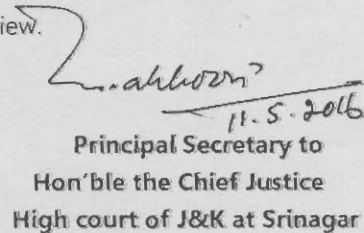 iew.
11.5.2016
Principal Secretary to
Hon'ble the Chief Justice
High court of J&K at Srinagar